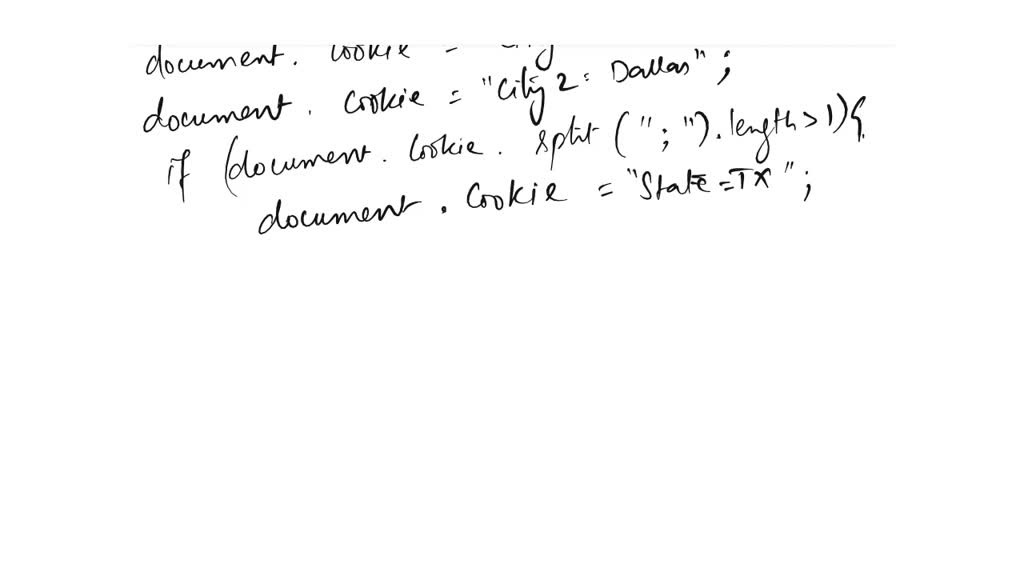 document. cookie =
document. cookie = "City2= Dallas";
if (document. cookie. split (";"). length>1){
document. cookie = "State=TX";